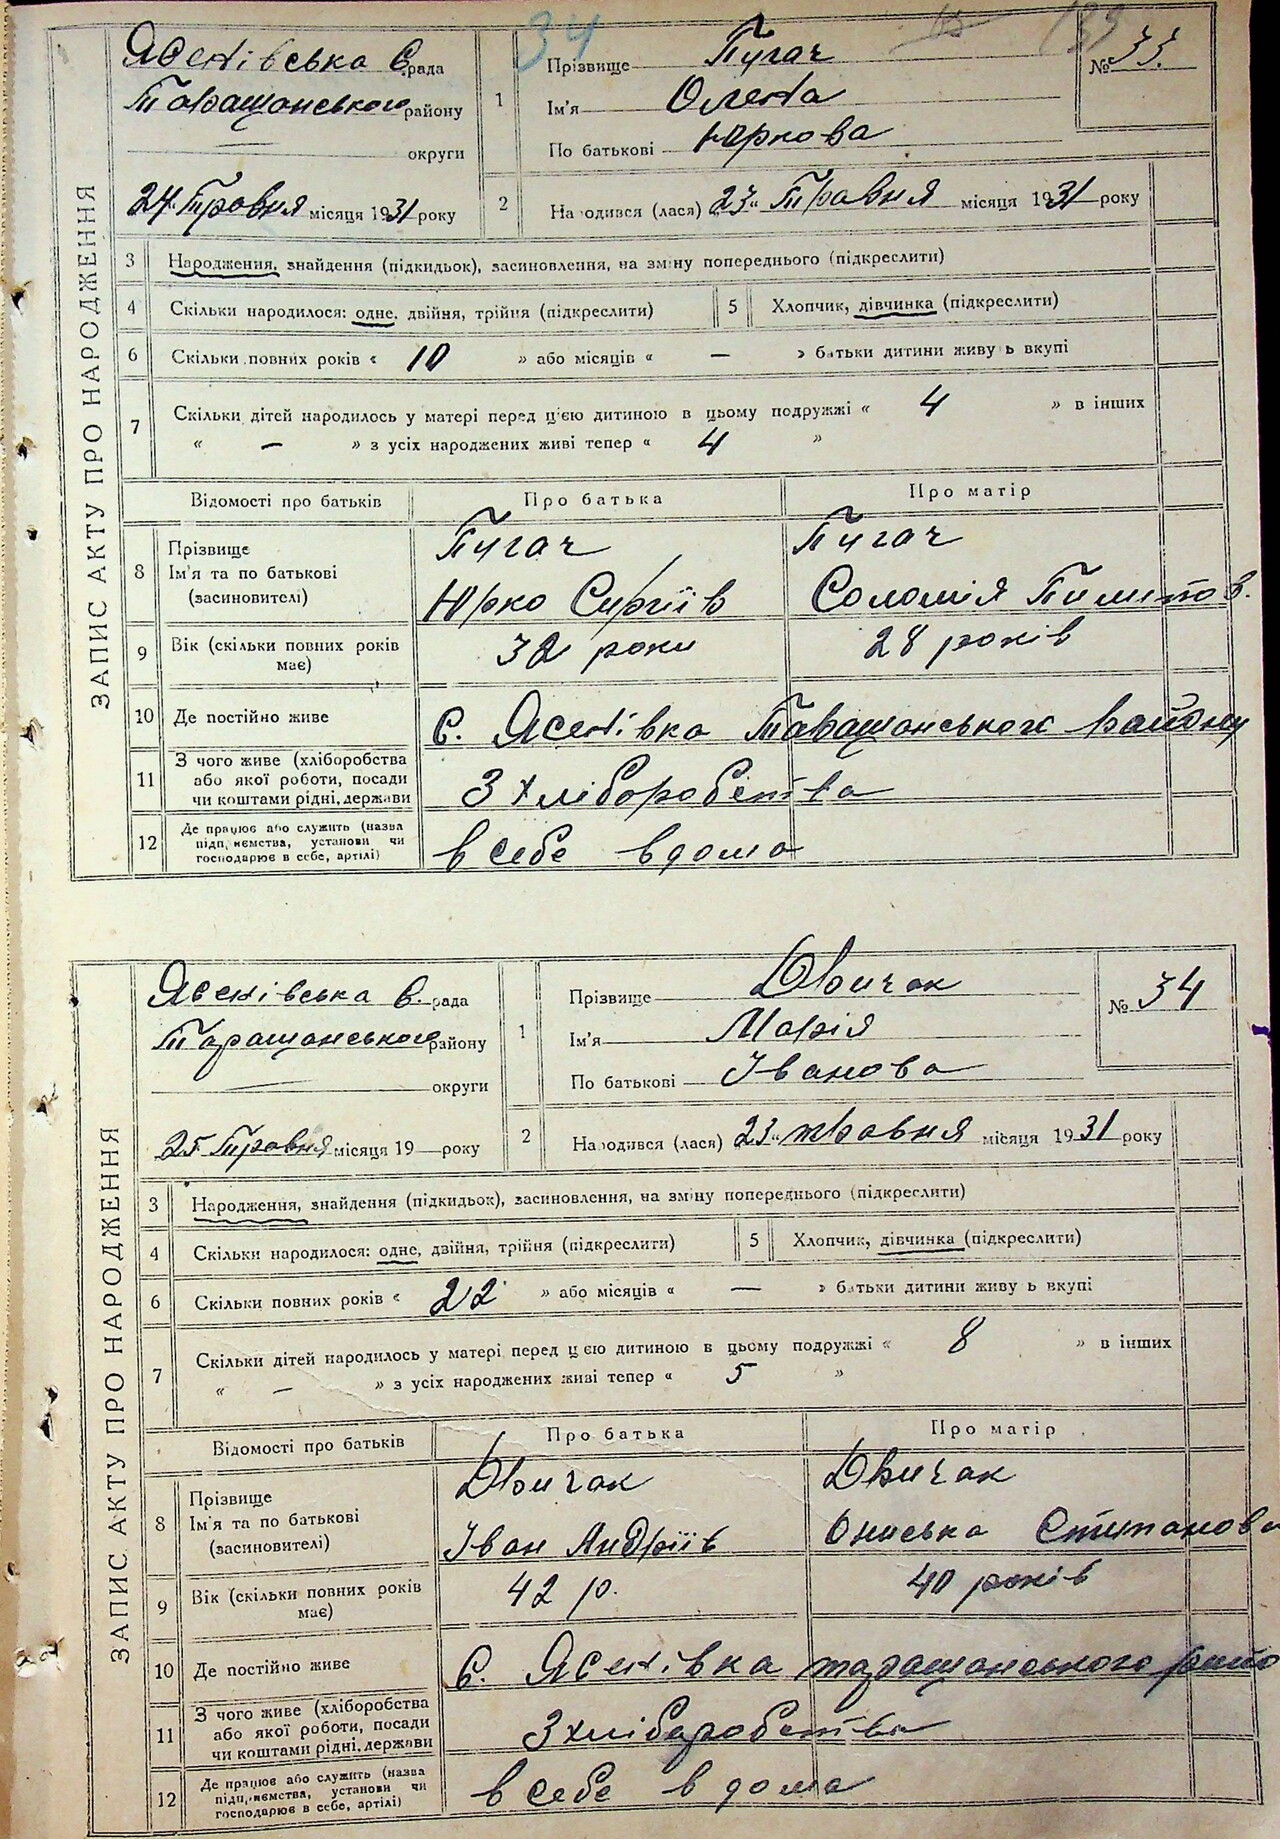 ЗАПИС АКТУ ПРО НАРОДЖЕННЯ
34
139
Ясенівська с. рада
Таращанського району
округи
24 Травня місяця 1931 року
1
Прізвище Пугач
Ім'я Олена
По батькові Юркова
№ 33.
2
Народився (лася) 23" Травня місяця 1931 року
3 Народження, знайдення (підкидьок), засиновлення, на зміну попереднього (підкреслити)
4 Скільки народилося: одне, двійня, трійня (підкреслити) 5 Хлопчик, дівчинка (підкреслити)
6 Скільки повних років « 10 » або місяців « — » батьки дитини живу ь вкупі
7 Скільки дітей народилось у матері перед цією дитиною в цьому подружжі « 4 » в інших
« — » з усіх народжених живі тепер « 4 »
Відомості про батьків Про батька Про матір
8 Прізвище Пугач Пугач
Ім'я та по батькові Юрко Сиргіїв Соломія Пилипов.
(засиновителі)
9 Вік (скільки повних років має) 32 роки 28 років
10 Де постійно живе С. Ясенівка Таращанського району
11 З чого живе (хліборобства
або якої роботи, посади
чи коштами рідні, держави З хліборобства
12 Де працює або служить (назва
підприємства, установи чи
господарює в себе, артілі) в себе вдома
ЗАПИС АКТУ ПРО НАРОДЖЕННЯ
Ясенівська с. рада
Таращанського району
округи
25 Травня місяця 19 — року
1
Прізвище Двичак
Ім'я Марія
По батькові Іванова
№ 34
2
Народився (лася) 23" травня місяця 1931 року
3 Народження, знайдення (підкидьок), засиновлення, на зміну попереднього (підкреслити)
4 Скільки народилося: одне, двійня, трійня (підкреслити) 5 Хлопчик, дівчинка (підкреслити)
6 Скільки повних років « 22 » або місяців « — » батьки дитини живу ь вкупі
7 Скільки дітей народилось у матері перед цією дитиною в цьому подружжі « 8 » в інших
« — » з усіх народжених живі тепер « 5 »
Відомості про батьків Про батька Про матір
8 Прізвище Двичак Двичак
Ім'я та по батькові Іван Андріїв Ониська Степанова
(засиновителі)
9 Вік (скільки повних років має) 42 р. 40 років
10 Де постійно живе С. Ясенівка таращанського райо
11 З чого живе (хліборобства
або якої роботи, посади
чи коштами рідні, держави З хліборобства
12 Де працює або служить (назва
підприємства, установи чи
господарює в себе, артілі) в себе в дома